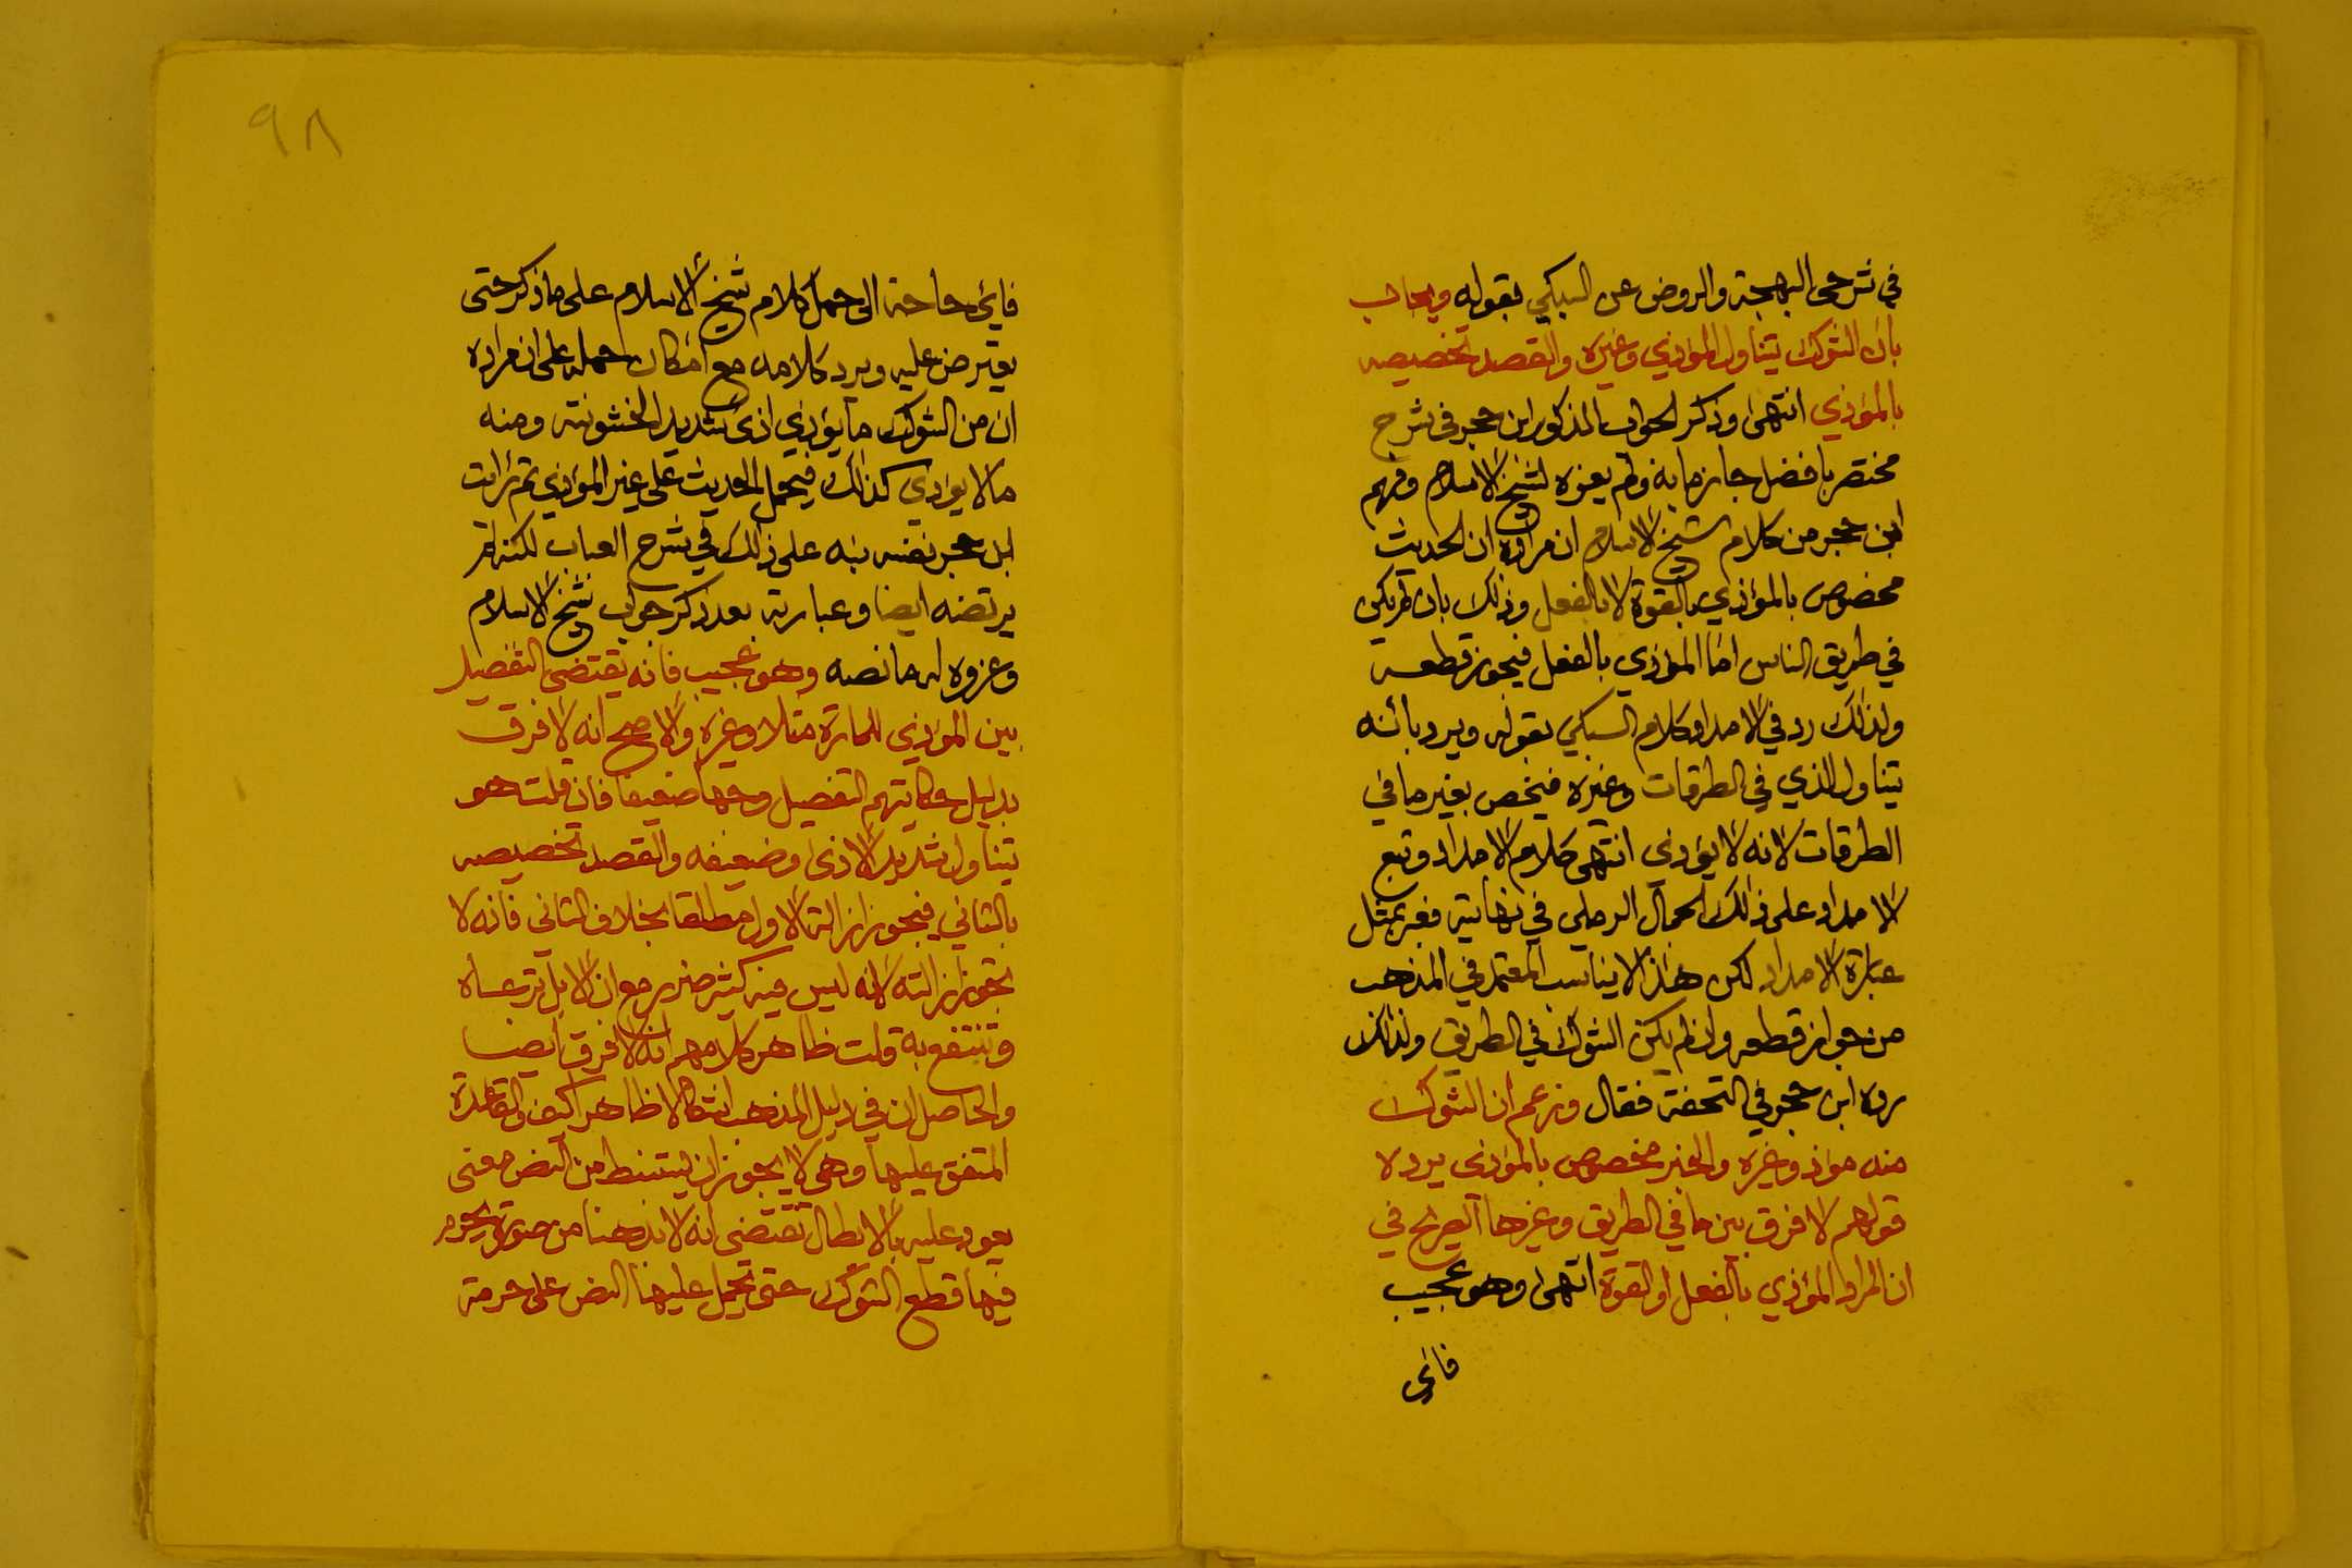 في شرحي البهجة والروض عن السبكي بقوله ويجاب
بان الشوك يتناول المؤذي وغيره والقصد تخصيصه
بالمؤذي انتهى وذكر الجواب المذكور ابن حجر في شرح
مختصر بافضل جازما به ولم يعزه لشيخ الاسلام وفهم
ابن حجر من كلام شيخ الاسلام ان مراده ان الحديث
مخصوص بالمؤذي بالقوة لا بالفعل وذلك بان لم يكن
في طريق الناس اما المؤذي بالفعل فيجوز قطعه
ولذلك رد في الامداد كلام السبكي بقوله ويرد بانه
يتناول الذي في الطرقات وغيره فيخص بغير ما في
الطرقات لانه لا يؤذي انتهى كلام الامداد وتبع
الامداد على ذلك الجمال الرملي في نهايته فعبر بمثل
عبارة الامداد لكن هذا لا يناسب المعتمد في المذهب
من جواز قطعه وان لم يكن الشوك في الطريق ولذلك
رده ابن حجر في التحفة فقال وزعم ان الشوك
منه مؤذ وغيره والخبر مخصوص بالمؤذى يرده
قولهم لا فرق بين ما في الطريق وغيرها الصريح في
ان المراد المؤذي بالفعل او القوة انتهى وهو عجيب
فاي
٩٨
فاي حاجة الى حمل كلام شيخ الاسلام على ما ذكر حتى
يعترض عليه ويرد كلامه مع امكان حمله على ان مراده
ان من الشوك ما يؤذي اذى شديد الخشونته ومنه
ما لا يؤذي كذلك فيحمل الحديث على غير المؤذي ثم رأيت
ابن حجر نفسه نبه على ذلك في شرح العباب لكنه لم
يرتضه ايضا وعبارته بعد ذكر جواب شيخ الاسلام
وعزوه له ما نصه وهو عجيب فانه يقتضى التفصيل
بين المؤذي للمارة مثلا وغيره والاصح انه لا فرق
بدليل حكايتهم التفصيل وجها ضعيفا فان قلت هو
يتناول شديد الاذى وضعيفه والقصد تخصيصه
بالثاني فيجوز ازالة الاول مطلقا بخلاف الثاني فانه لا
تجوز ازالته لانه ليس فيه كثير ضرر مع ان الابل ترعاه
وتنتفع به قلت ظاهر كلامهم انه لا فرق ايضا
والحاصل ان في دليل المذهب اشكالا ظاهرا كيف والقاعدة
المتفق عليها وهى لا يجوز ان يستنبط من النص معنى
يعود عليه بالابطال تقتضى انه لا بد هنا من صورة يحرم
فيها قطع الشوك حتى يحمل عليها النص على حرمة